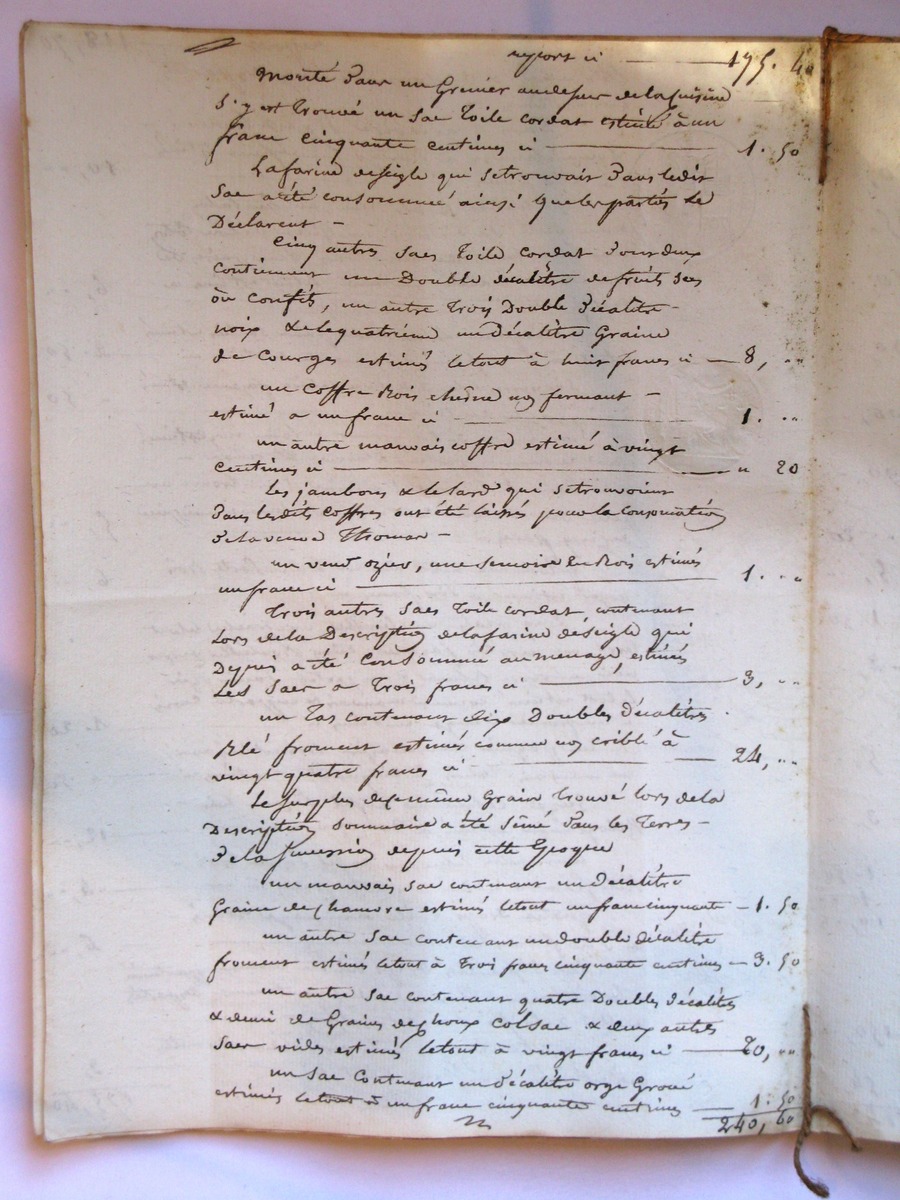 report ci 175. 40
Monté dans un Grenier audessus de la cuisine
S'y est trouvé un Sac toile cordat estimé à un
franc cinquante centimes ci 1. 50
La farine de seigle qui se trouvait dans ledit
Sac a été consommée ainsi que les parties le
Déclarent -
Cinq autres Sacs toile cordat dont deux
contiennent un Double décalitre de fruits secs
ou confits, un autre trois Double Décalitre -
noix & le quatrième un Décalitre Graine
de Courges estimés le tout à huit francs ci 8, "
un coffre Bois chêne non fermant -
estimé a un franc ci 1. "
un autre mauvais coffre estimé à vingt
centimes ci " 20
Les jambons & le Lard qui se trouvoient
dans lesdits coffres ont été laissés pour la Consomation
de la veuve Thomas -
un ozier, une Bois estimés
un franc ci 1. "
Trois autres Sacs toile cordat contenant
Lors de la Description de la farine de seigle qui
Depuis a été Consommée au menage, estimés
Les Sacs a Trois francs ci 3, "
un Tas contenant dix Doubles Décalitres
Blé froment estimés comme non criblé à
vingt quatre francs ci 24, "
Le Surplus de ce même Grain trouvé lors de la
Description sommaire a été Sémé dans les Terres -
de la Succession depuis cette Epoque
un mauvais Sac contenant un Décalitre
Graine de chanvre estimés le tout un franc cinquante 1. 50
un autre Sac contenant un double Décalitre
froment estimés le tout à Trois francs cinquante centimes 3. 50
un autre Sac contenant quatre Doubles Décalitres
& demi de Graines de choux Colsac & deux autres
Sacs vides estimés le tout à vingt francs ci 20, "
un Sac Contenant un décalitre orge Groué
estimés le tout à un franc cinquante centimes 1. 50
240, 60